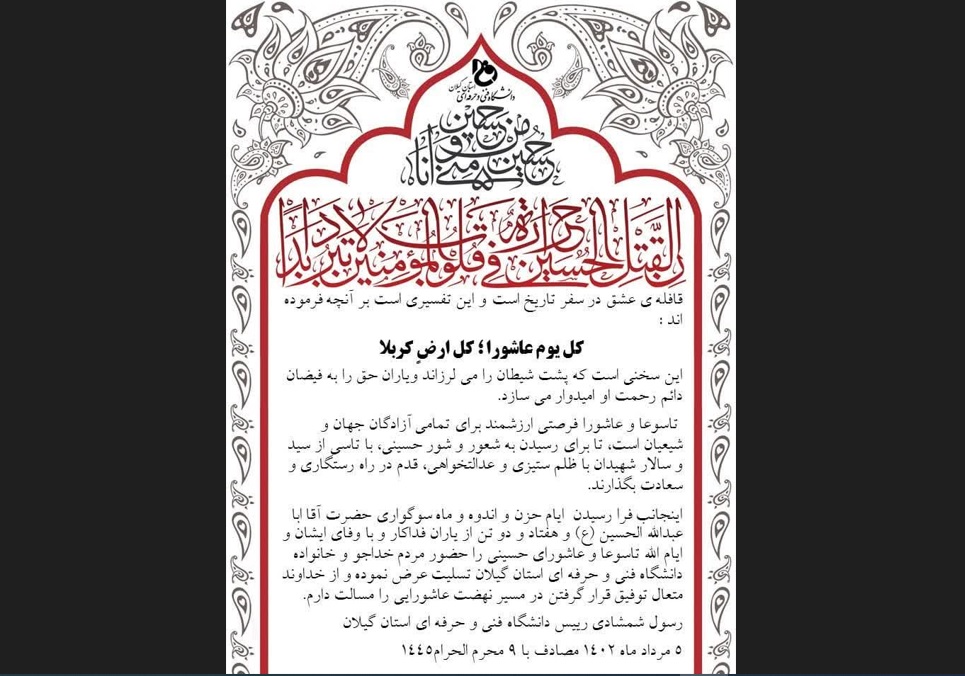 دانشگاه فنی و حرفه‌ای
استان گیلان
حسین منی و انا من حسین
ان لقتل الحسین حرارة فی قلوب المؤمنین لا تبرد ابدا
قافله ی عشق در سفر تاریخ است و این تفسیری است بر آنچه فرموده
اند :
کل یوم عاشورا؛ کل ارضٍ کربلا
این سخنی است که پشت شیطان را می لرزاند ویاران حق را به فیضان
دائم رحمت او امیدوار می سازد.
تاسوعا و عاشورا فرصتی ارزشمند برای تمامی آزادگان جهان و
شیعیان است، تا برای رسیدن به شعور و شور حسینی، با تاسی از سید
و سالار شهیدان با ظلم ستیزی و عدالتخواهی، قدم در راه رستگاری و
سعادت بگذارند.
اینجانب فرا رسیدن ایام حزن و اندوه و ماه سوگواری حضرت آقا ابا
عبدالله الحسین (ع) و هفتاد و دو تن از یاران فداکار و با وفای ایشان و
ایام الله تاسوعا و عاشورای حسینی را حضور مردم خداجو و خانواده
دانشگاه فنی و حرفه ای استان گیلان تسلیت عرض نموده و از خداوند
متعال توفیق قرار گرفتن در مسیر نهضت عاشورایی را مسالت دارم.
رسول شمشادی رییس دانشگاه فنی و حرفه ای استان گیلان
۵ مرداد ماه ۱۴۰۲ مصادف با ۹ محرم الحرام۱۴۴۵